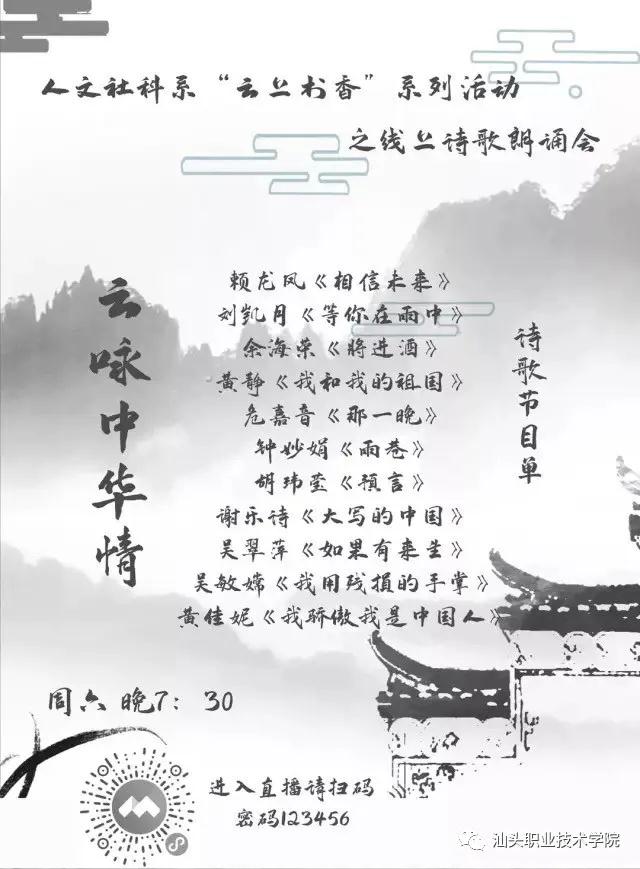 人文社科系“云上书香”系列活动
之线上诗歌朗诵会
云咏中华情
诗歌节目单
赖龙凤《相信未来》
刘凯月《等你在雨中》
余海荣《將进酒》
黄静《我和我的祖国》
危嘉音《那一晚》
钟妙娟《雨巷》
胡玮莹《預言》
谢乐诗《大写的中国》
吴翠萍《如果有来生》
吴敏嫦《我用残損的手掌》
黄佳妮《我骄傲我是中国人》
周六 晚7：30
进入直播请扫码
密码123456
汕头职业技术学院